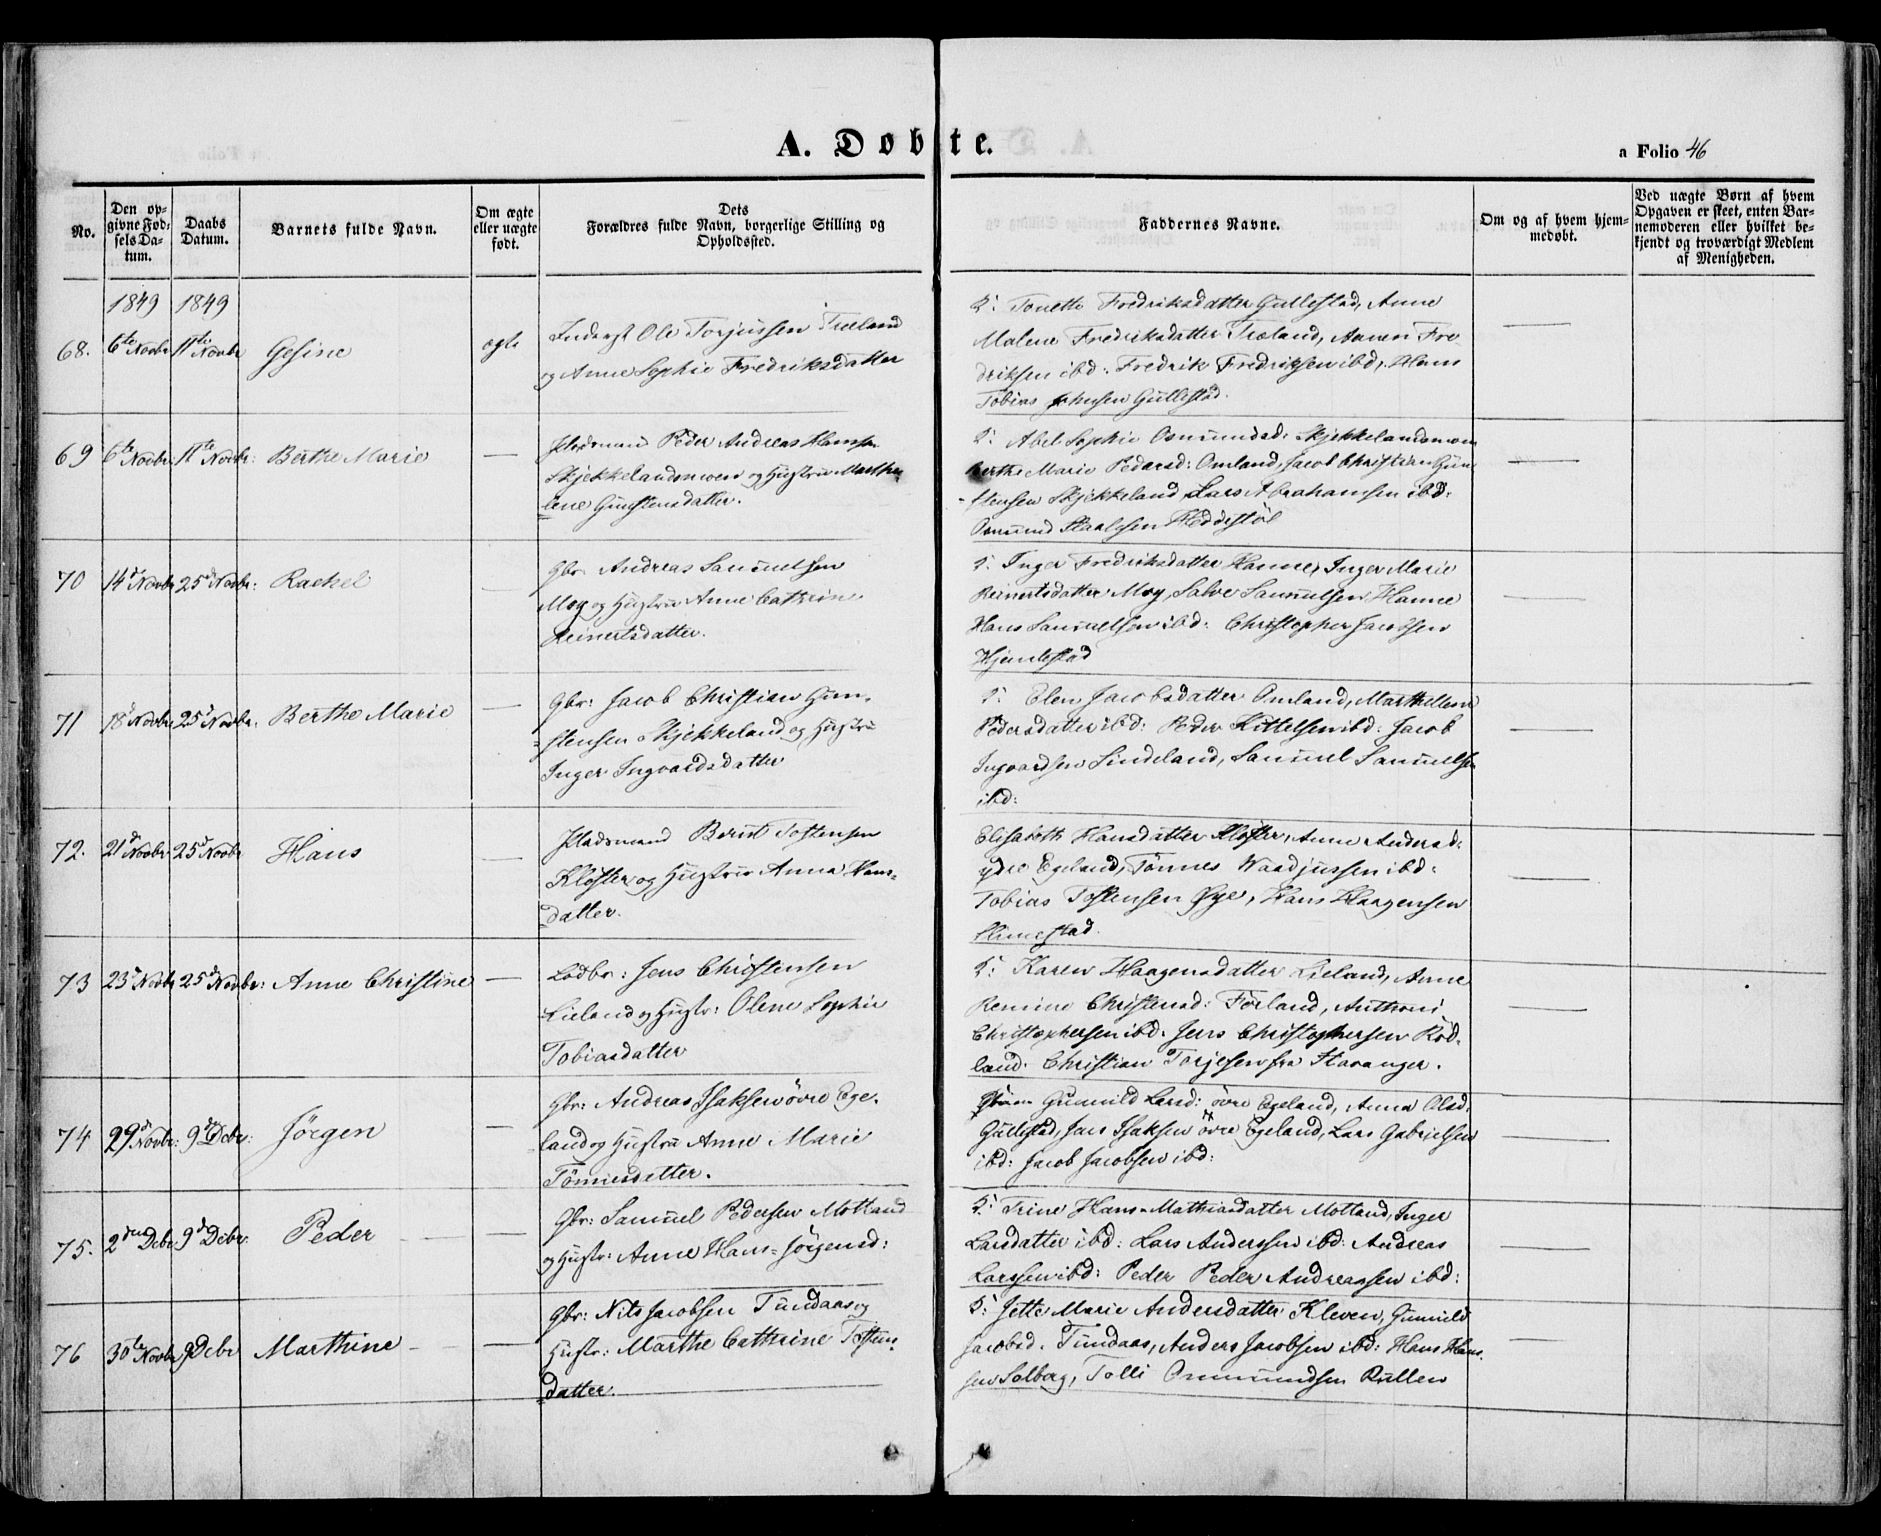 A. Døbte.
a Folio 46
No.
Den opgivne Fødsels Datum.
Daabs Datum.
Barnets fulde Navn.
Om ægte eller uægte født.
Dets Forældres fulde Navn, borgerlige Stilling og Opholdssted.
Faddernes Navne.
Om og af hvem hjemmedøbt.
Ved uægte Børn af hvem Opgaven er skeet, enten Barnemoderen eller hvilket bekjendt og troværdigt Medlem af Menigheden.
1849 1849
68. 6te Novbr 11te Novbr Gesine ægte
Inderst Ole Torjussen Træland
og Anne Sophie Fredriksdatter
Tonette Fredriksdatter Gullestad, Anne
Malene Fredriksdatter Træland, Aanen Fre
driksen ibd: Fredrik Fredriksen ibd, Hans
Tobias Johnsen Gullestad.
69 6te Novbr 11te Novbr: Berthe Marie —
Pladsmand Peder Andreas Hansen
Skjekkelandsmoen og Hustru Marthe
lene Gunstensdatter.
Abel Sophie Osmundsd: Skjekkelandsmoen
Berthe Marie Pedersd: Omland, Jacob Christian Gun
stensen Skjekkeland Lars Abrahamsen ibd:
Osmund Staalesen Heddestøl
70 14d Novbr 25d Novbr: Rachel
Gbr: Andreas Samuelsen
Moy og Hustru Anne Cathrine
Reinertsdatter.
Inger Fredriksdatter Hanne, Inger Marie
Reinertsdatter Moy, Salve Samuelsen Hanne
Hans Samuelsen ibd: Christopher Jacobsen
Hjemlestad
71 18d Novbr 25d Novbr: Berthe Marie —
Gbr: Jacob Christian Gun-
stensen Skjekkeland og Hustru
Inger Ingvardsdatter
Elen Jacobsdatter Omland, Marthe Lene
Pedersdatter ibd: Peder Kittelsen ibd: Jacob
Ingvardsen Lindeland, Samuel Samuelsen
ibd:
72. 21d Novbr 25d Novbr Hans —
Pladsmand Bernt Tostensen
Kloster og Hustru Anna Hans-
datter.
Elisabeth Hansdatter Kloster, Anne Andersd:
ydre Egeland, Tønnes Waadjussen ibd:
Tobias Tostensen Øye, Hans Haagensen
Slimestad.
73 23d Novbr 25d Novbr: Anne Christine —
Lodbr: Jens Christensen
Lieland og Hustr: Olene Sophie
Tobiasdatter
5: Karen Haagensdatter Lieland, Anne
Remine Christensd: Førland, Anthoni
Christophersen ibd: Jens Christophersen Rød-
land. Christian Torjesen fra Stavanger.
74 29d Novbr: 9d Debr: Jørgen —
Gbr: Andreas Isaksen øvre Ege-
land og Hustru Anne Marie
Tønnesdatter.
Gunnild Larsd: øvre Egeland, Anna Olsd:
Gullestad, Jens Isaksen øvre Egeland, Lars Gabrielsen
ibd: Jacob Jacobsen ibd:
75. 2den Debr 9d Debr. Peder —
Gbr: Samuel Pedersen Motland
og Hustr: Anne Hans-Jørgensd:
5: Trine Hans-Mathiasdatter Motland, Inger
Larsdatter ibd: Lars Anderssen ibd: Andreas
Larssen ibd: Peder Peder Andreassen ibd:
76 30te Novbr 9 Debr Marthine —
Gbr: Nils Jacobsen Tundaas og
Hustr: Marthe Cathrine Tosten-
datter.
5: Jette Marie Andersdatter Kleven, Gunnild
Jacobsd. Tundaas, Anders Jacobsen ibd: Hans Han-
sen Solberg, Tolli Osmundsen Rullen